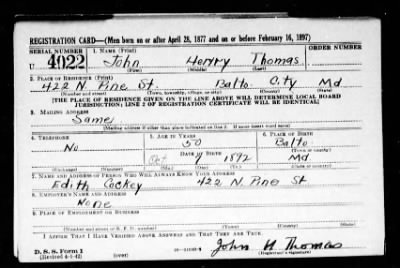 REGISTRATION CARD—(Men born on or after April 28, 1877 and on or before February 16, 1897)
SERIAL NUMBER
1. NAME (Print)
ORDER NUMBER
U 4022
John Henry Thomas
(First) (Middle) (Last)
2. PLACE OF RESIDENCE (Print)
422 N. Pine St. Balto City Md
(Number and street) (Town, township, village, or city) (County) (State)
[THE PLACE OF RESIDENCE GIVEN ON THE LINE ABOVE WILL DETERMINE LOCAL BOARD
JURISDICTION; LINE 2 OF REGISTRATION CERTIFICATE WILL BE IDENTICAL]
3. MAILING ADDRESS
Same
[Mailing address if other than place indicated on line 2. If same insert word same]
4. TELEPHONE
5. AGE IN YEARS
6. PLACE OF BIRTH
No
50
Balto
DATE OF BIRTH
(Town or county)
Oct 7 1892
Md
(Exchange) (Number)
(Mo.) (Day) (Yr.)
(State or country)
7. NAME AND ADDRESS OF PERSON WHO WILL ALWAYS KNOW YOUR ADDRESS
Edith Cockey 422 N. Pine St
8. EMPLOYER'S NAME AND ADDRESS
None
9. PLACE OF EMPLOYMENT OR BUSINESS
(Number and street or R. F. D. number) (Town) (County) (State)
I AFFIRM THAT I HAVE VERIFIED ABOVE ANSWERS AND THAT THEY ARE TRUE.
D. S. S. Form 1
(Revised 4-1-42) (over)
John H Thomas
(Registrant's signature)